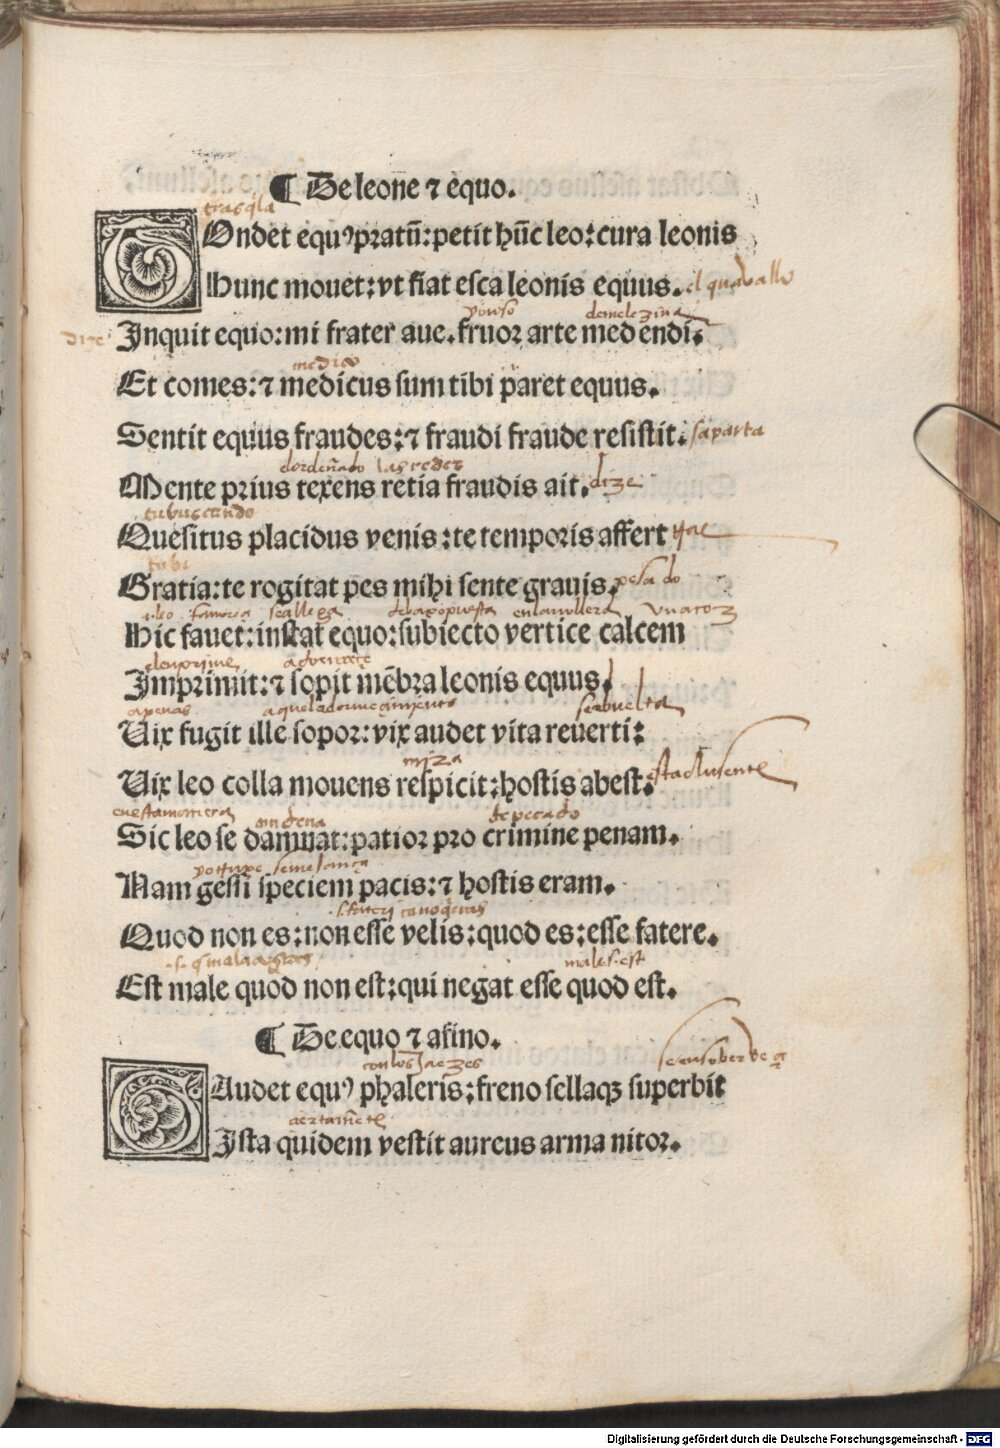 ¶ De leone ⁊ equo.
TOndet equꝰ pratū: petit hūc leo: cura leonis
Hunc mouet: vt fiat esca leonis equus.
dize
yo vso
Inquit equo: mi frater aue. fruor arte medendi.
medico
Et comes: ⁊ medicus sum tibi paret equus.
Sentit equus fraudes: ⁊ fraudi fraude resistit. saparta
las redes
Mente prius texens retia fraudis ait. dize
tu buscando
Quesitus placidus venis: te temporis affert trae
Gratia: te rogitat pes mihi sente grauis. pesado
Hic fauet: instat equo: subiecto vertice calcem
Imprimit: ⁊ sopit mēbra leonis equus.
apenas
Uix fugit ille sopor: vix audet vita reuerti:
miza
Uix leo colla mouens respicit: hostis abest.
de pecado
Sic leo se damnat: patior pro crimine penam.
Nam gessi speciem pacis: ⁊ hostis eram.
Quod non es: non esse velis: quod es: esse fatere.
male s. est
Est male quod non est: qui negat esse quod est.
¶ De equo ⁊ asino.
con los jaezes
GAudet equꝰ phaleris: freno sellaqꝫ superbit
Ista quidem vestit aureus arma nitor.
Digitalisierung gefördert durch die Deutsche Forschungsgemeinschaft - DFG